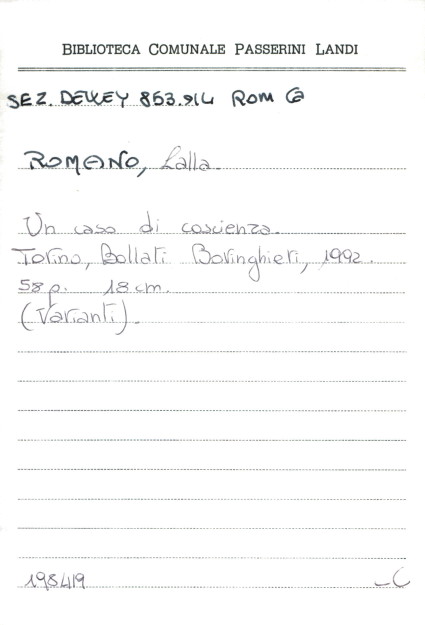 BIBLIOTECA COMUNALE PASSERINI LANDI
SEZ. DEWEY 853.914 ROM
ROMANO, Lalla.
Un caso di coscienza.
Torino, Bollati Boringhieri, 1992.
58 p. 18 cm.
(Varianti).
198419